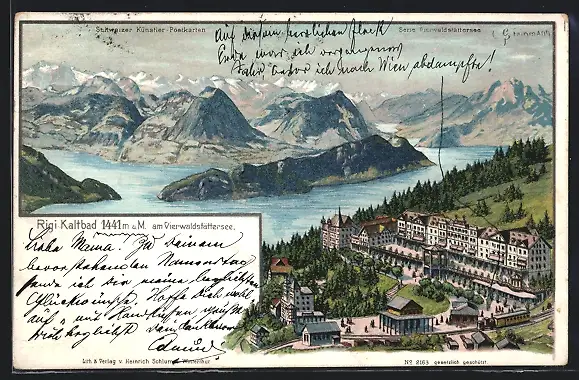 Schweizer Künstler-Postkarten
Serie Vierwaldstättersee
Auf diesem herrlichen Fleck
Erde war ich vergangenes
Jahr bevor ich nach Wien abdampfte!
Rigi Kaltbad 1441 m ü. M. am Vierwaldstättersee.
Liebe Mama! Zu Deinem
bevorstehenden Namenstag
sende ich Dir meine herzlichsten
Glückwünsche. Hoffe Dich wohl
auf, und mit Handkuss
Dein dankbarer
Lith. & Verlag v. Heinrich Schlumpf, Winterthur
No. 2163 gesetzlich geschützt.